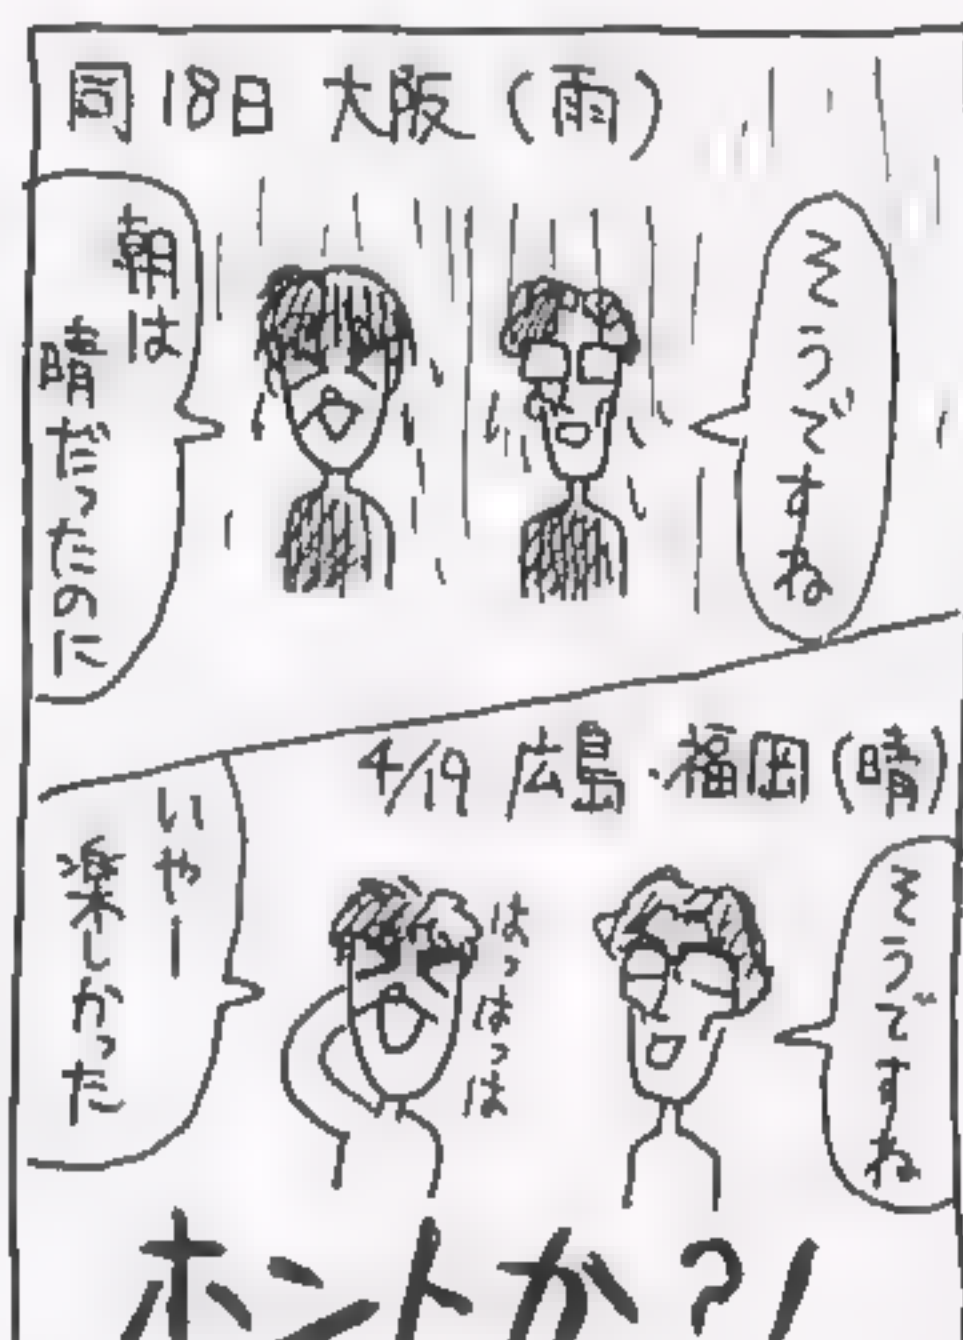 同18日 大阪(雨)
そうですね
朝は
晴だったのに
4/19 広島・福岡(晴)
そうですね
はっはっは
いやー
楽しかった
ホントか?!